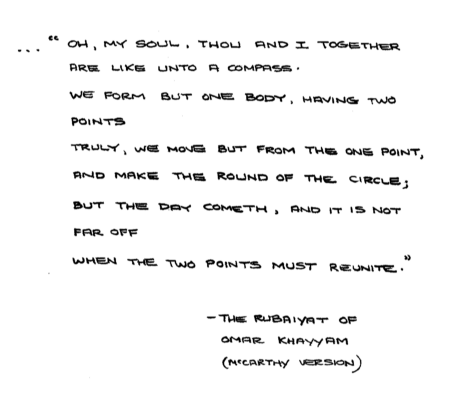 ... "OH, MY SOUL, THOU AND I TOGETHER
ARE LIKE UNTO A COMPASS.
WE FORM BUT ONE BODY, HAVING TWO
POINTS
TRULY, WE MOVE BUT FROM THE ONE POINT,
AND MAKE THE ROUND OF THE CIRCLE;
BUT THE DAY COMETH, AND IT IS NOT
FAR OFF
WHEN THE TWO POINTS MUST REUNITE."
- THE RUBAIYAT OF
OMAR KHAYYAM
(McCARTHY VERSION)